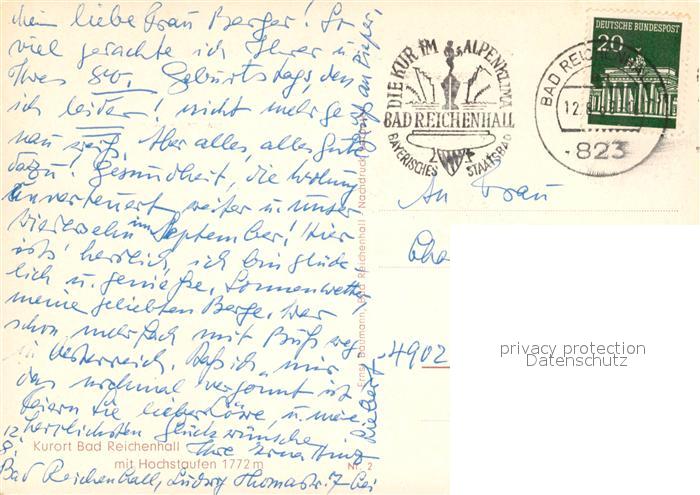 Mein liebe Frau Berger! So
viel gedachte ich Ihrer u.
Ihres 80. Geburtstags, den
ich leider! nicht mehr ge-
nau weiß. Aber alles, alles Gute
dazu! Gesundheit, die Wohnung
unverteuert weiter u. unser
Wiedersehn im September! Hier
ists herrlich, ich bin glück-
lich u. genieße, Sonnenwetter,
meine geliebten Berge. War
schon mehrfach mit Bus weg
in Oesterreich. Daß ich mir
das nochmal vergönnt ist
feiern Sie lieber Löwe, u. meine
herzlichsten Glückwünsche
Ihre Erna
Bad Reichenhall, Ludwig Thomastr. 7 bei
Kurort Bad Reichenhall
mit Hochstaufen 1772 m
Nr. 2
Ernst Baumann, Bad Reichenhall · Nachdruck
DIE KUR IM ALPENKLIMA
BAD REICHENHALL
BAYERISCHES STAATSBAD
DEUTSCHE BUNDESPOST
20
BAD REICHENHALL
12.
823
An Frau
4902
privacy protection
Datenschutz